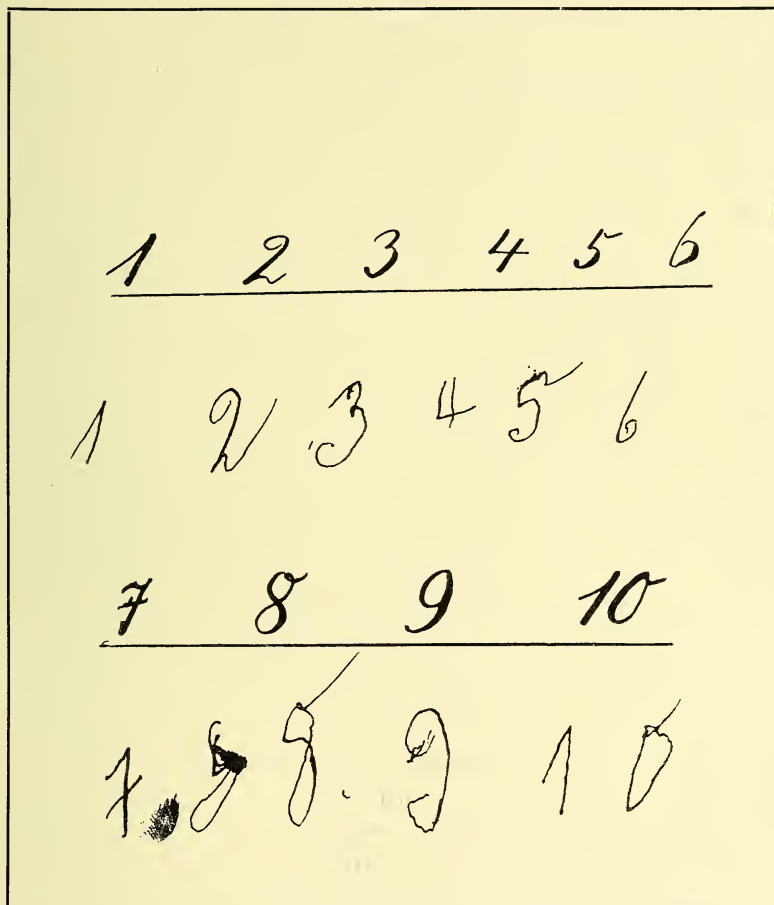 1 2 3 4 5 6
1 2 3 4 5 6
7 8 9 10
7 8 8. 9 10